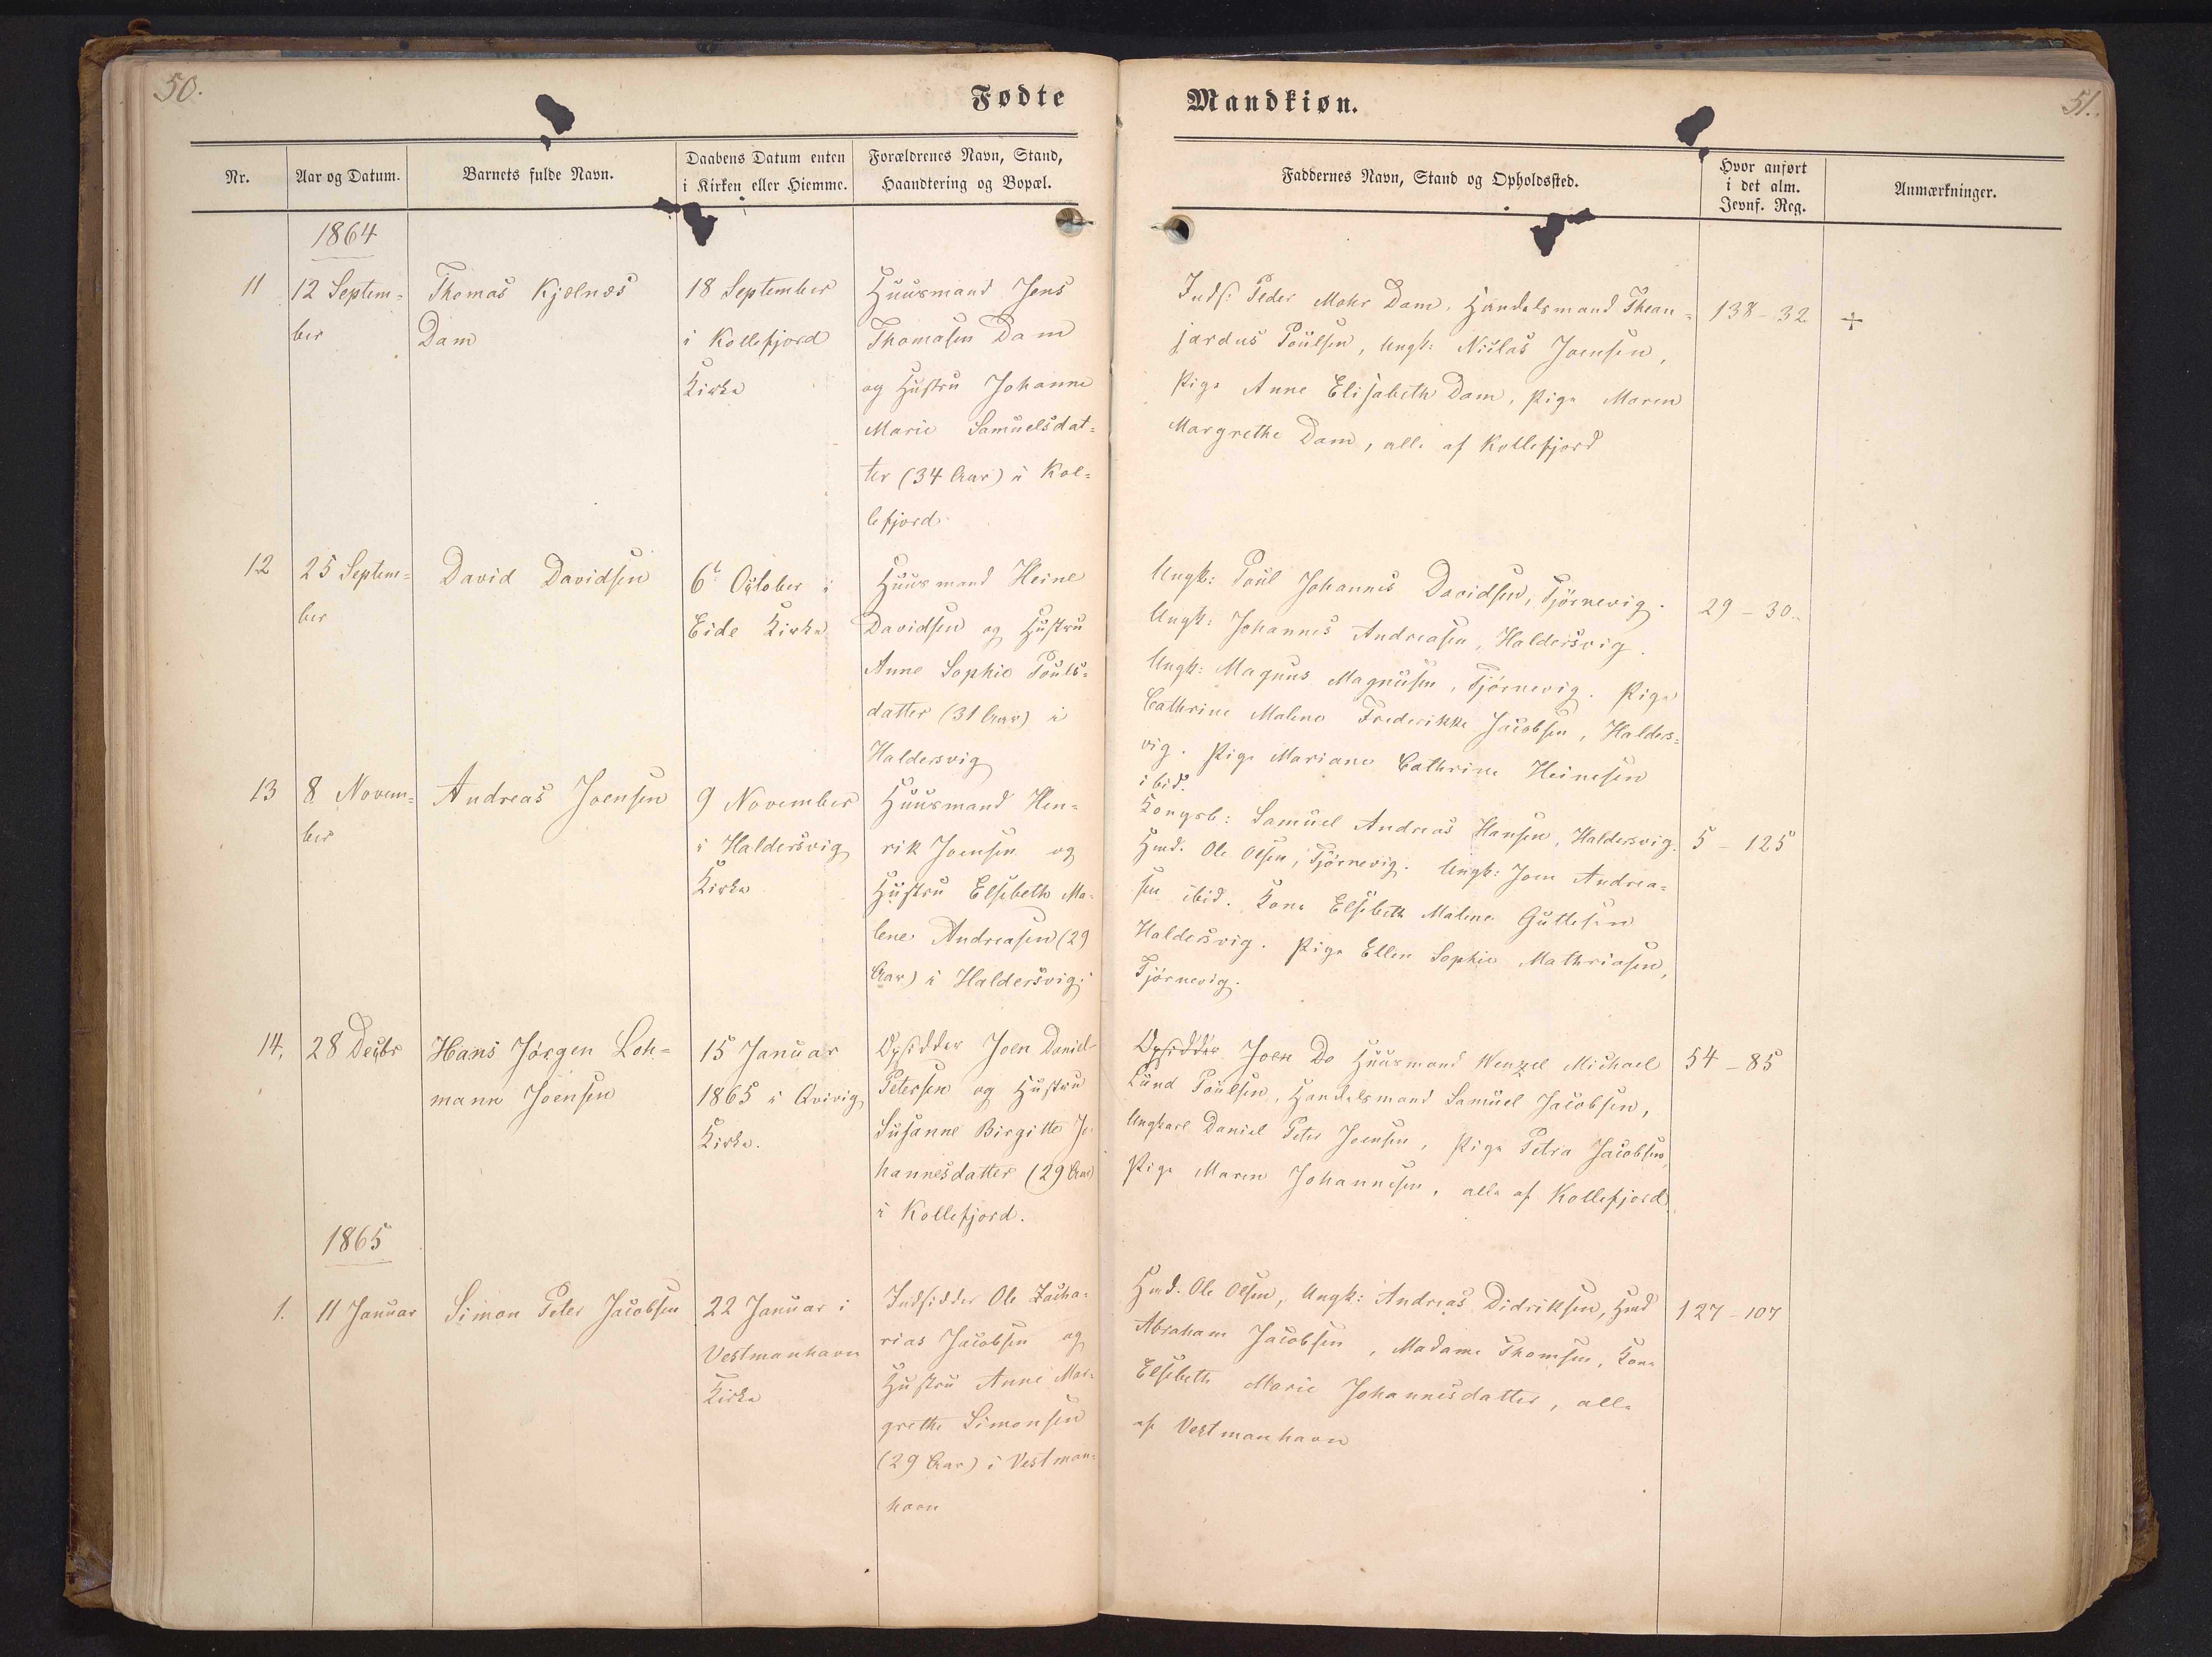 50.
Fødte
Nr.
Aar og Datum.
Barnets fulde Navn.
Daabens Datum enten
i Kirken eller Hiemme.
Forældrenes Navn, Stand,
Haandtering og Bopæl.
1864
11
12 Septem-
ber
Thomas Kjølnæs
Dam
18 September
i Kollefjord
Kirke
Huusmand Jens
Thomasen Dam
og Hustru Johanne
Marie Samuelsdat-
ter (34 Aar) i Kol-
lefjord
12
25 Septem-
ber
David Davidsen
6t October i
Eide Kirke
Huusmand Heine
Davidsen og Hustru
Anne Sophie Pouls-
datter (31 Aar) i
Haldersvig
13
8 Novem-
ber
Andreas Joensen
9 November
i Haldersvig
Kirke
Huusmand Hen-
rik Joensen og
Hustru Elsebeth Ma-
lene Andreasen (29
Aar) i Haldersvig
14,
28 Decbr
Hans Jørgen Loh-
mann Joensen
15 Januar
1865 i Qvivig
Kirke.
Opsidder Joen Daniel
Petersen og Hustru
Susanne Birgitte Jo-
hannesdatter (29 Aar)
i Kollefjord.
1865
1.
11 Januar
Simon Peter Jacobsen
22 Januar i
Vestmanhavn
Kirke
Indsidder Ole Zacha-
rias Jacobsen og
Hustru Anne Mar-
grethe Simonsen
(29 Aar) i Vestman-
havn
Mandkiøn.
51.
Faddernes Navn, Stand og Opholdssted.
Hvor anført
i det alm.
Jevnf. Reg.
Anmærkninger.
Inds: Peder Mohr Dam, Handelsmand Thean-
jardus Poulsen, Ungk: Niclas Joensen,
Pige Anne Elisabeth Dam, Pige Maren
Margrethe Dam, alle af Kollefjord
138 - 32
+
Ungk: Poul Johannes Davidsen, Tjørnevig.
Ungk: Johannes Andreasen, Haldersvig.
Ungk: Magnus Magnusen, Tjørnevig. Pige
Cathrine Malene Frederikke Jacobsen, Halders-
vig. Pige Mariane Cathrine Heinesen
ibid.
29 - 30.
Kongsb: Samuel Andreas Hansen, Haldersvig.
Hmd. Ole Olsen, Tjørnevig. Ungk: Joen Andrea-
sen ibid. Kone Elsebeth Malene Guttesen
Haldersvig. Pige Ellen Sophie Mathriasen,
Tjørnevig.
5 - 125
Opsidder Joen Do Huusmand Wenzel Michael
Lund Poulsen, Handelsmand Samuel Jacobsen,
Ungkarl Daniel Peter Joensen, Pige Petra Jacobsen,
Pige Maren Johannesen, alle af Kollefjord.
54 - 85
Hmd. Ole Olsen, Ungk: Andreas Didriksen, Hmd
Abraham Jacobsen, Madame Thomsen, Kone
Elsebeth Marie Johannesdatter, alle
af Vestmanhavn
127 - 107